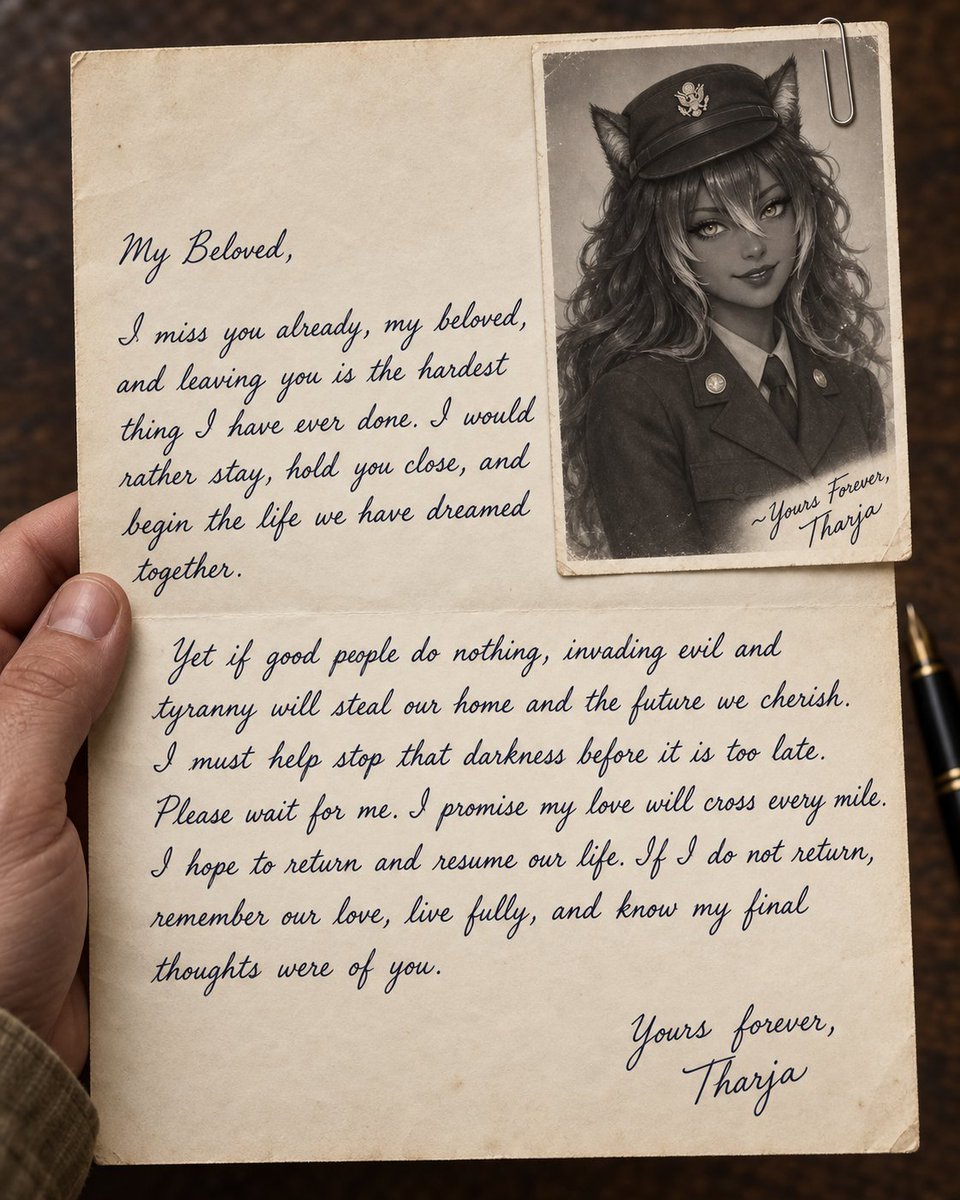 My Beloved,
I miss you already, my beloved,
and leaving you is the hardest
thing I have ever done. I would
rather stay, hold you close, and
begin the life we have dreamed
together.
~Yours Forever,
Tharja
Yet if good people do nothing, invading evil and
tyranny will steal our home and the future we cherish.
I must help stop that darkness before it is too late.
Please wait for me. I promise my love will cross every mile.
I hope to return and resume our life. If I do not return,
remember our love, live fully, and know my final
thoughts were of you.
Yours forever,
Tharja